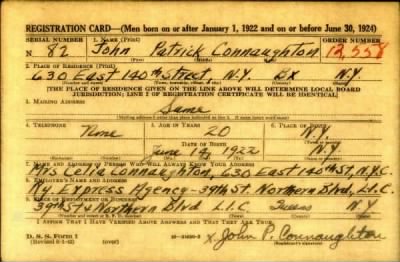 REGISTRATION CARD—(Men born on or after January 1, 1922 and on or before June 30, 1924)
SERIAL NUMBER 1. NAME (Print) ORDER NUMBER
N 82 John Patrick Connaughton 12,558
(First) (Middle) (Last)
2. PLACE OF RESIDENCE (Print)
630 East 140th Street, N.Y. Bx N.Y.
[THE PLACE OF RESIDENCE GIVEN ON THE LINE ABOVE WILL DETERMINE LOCAL BOARD
JURISDICTION; LINE 2 OF REGISTRATION CERTIFICATE WILL BE IDENTICAL]
3. MAILING ADDRESS
Same
4. TELEPHONE 5. AGE IN YEARS 6. PLACE OF BIRTH
None 20 N.Y.
DATE OF BIRTH
June 14, 1922 N.Y.
7. NAME AND ADDRESS OF PERSON WHO WILL ALWAYS KNOW YOUR ADDRESS
Mrs Celia Connaughton, 630 East 140th St, N.Y.C.
8. EMPLOYER'S NAME AND ADDRESS
Ry. Express Agency - 39th St. Northern Blvd, L.I.C.
9. PLACE OF EMPLOYMENT OR BUSINESS
39th St & Northern Blvd L.I.C N.Y
I AFFIRM THAT I HAVE VERIFIED ABOVE ANSWERS AND THAT THEY ARE TRUE.
D. S. S. Form 1
(Revised 6-1-42)
x John P. Connaughton
(Registrant's signature)